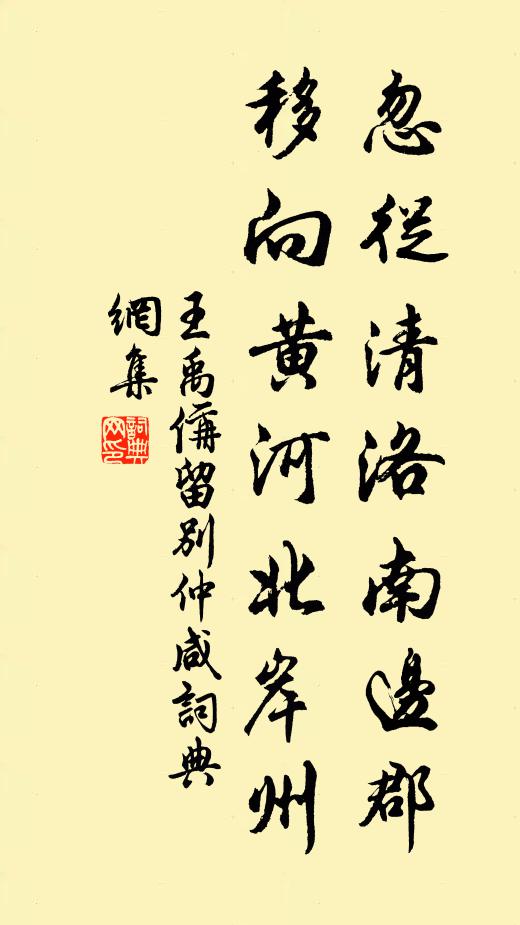 忽從清洛南邊郡
移向黃河北岸州
王禹偁留別仲咸詞典
網集
詞典
网印